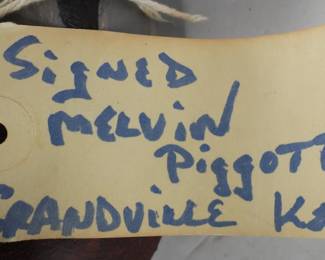 SiGNED
MELViN
PiGGOTT
GRANDVILLE